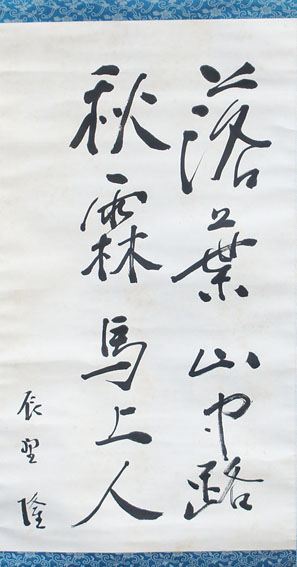 落葉山中路
秋霖馬上人
辰野隆